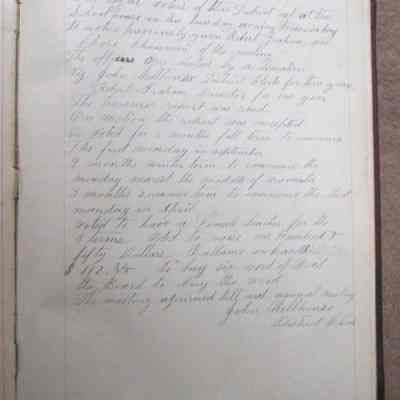 voters of this District met at the
School house on the tuesday evening
to notice previously given Robert Graham was
chosen chairman of the meeting
The officers are elected by
John Wellhouse District Clerk for three years
Robert Graham Director for one year
The Treasurer report was read
On motion the report was accepted
Voted for 2 months fall term to commence
The first monday in september
monday nearest the middle of november
3 months summer term to commence the last
monday in April
Voted to have a Female teacher for the
3 terms Voted to raise one hundred &
fifty Dollars. Ballance on hand
to buy six cord of wood
the Board to buy the wood
The meeting adjourned till next annual meeting
John Wellhouse
District Clerk